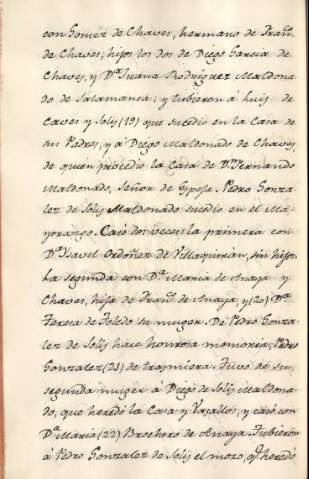 con Gomez de Chaves, hermano de Fran.co
de Chaves; hijos los dos de Diego Garcia de
Chaves, y D.a Juana Rodriguez Maldona
do de Salamanca; y tubieron á Luis de
Caves y Solis (19) que sucedio en la Casa de
sus Padres, y á Diego Maldonado de Chaves
de quien procedio la Casa de D.n Fernando
Maldonado, Señor de Espeja. Pedro Gonza
lez de Solis Maldonado sucedio en el Ma-
yorazgo. Casó dos veces la primera con
D.a Isavel Ordoñez de Villaquiran, sin hijos.
La segunda con D.a Maria de Anaya y
Chaves, hija de Fran.co de Anaya, y (20) D.a
Teresa de Toledo su muger. De Pedro Gonza
lez de Solis hace honrosa memoria, Pedro
Gonzalez (21) de Tuvo de su
segunda muger á Diego de Solis Maldona
do, que heredó la Casa y Vasallos, y casó con
D.a Maria (22) Brochero de Anaya. Tubieron
á Pedro Gonzalez de Solis el mozo, q.e heredó